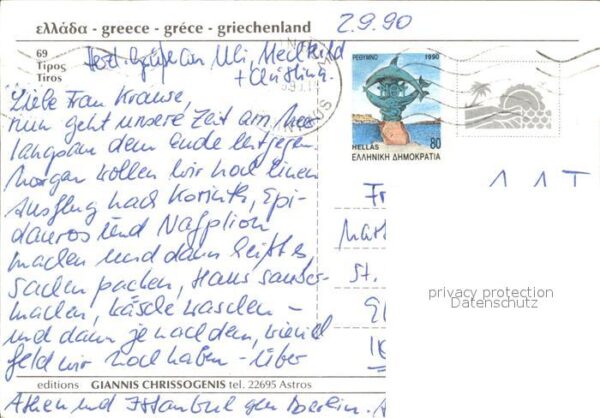 ελλάδα - greece - gréce - griechenland
2.9.90
69
Τίρος
Tiros
Herzl. Grüße an Uli, Mechthild
+ Christina.
Liebe Frau Krause,
nun geht unsere Zeit am Meer
langsam dem Ende entgegen
Morgen wollen wir noch einen
Ausflug nach Korinth, Epi-
dauros und Nafplion
machen und dann heißt es,
Sachen packen, Haus sauber-
machen, Wäsche waschen -
und dann je nachdem, wieviel
Geld wir noch haben - über
Athen und Istanbul gen Berlin.
ΡΕΘΥΜΝΟ 1990
HELLAS 80
ΕΛΛΗΝΙΚΗ ΔΗΜΟΚΡΑΤΙΑ
1 1 T
Fr
St.
privacy protection
Datenschutz
editions GIANNIS CHRISSOGENIS tel. 22695 Astros